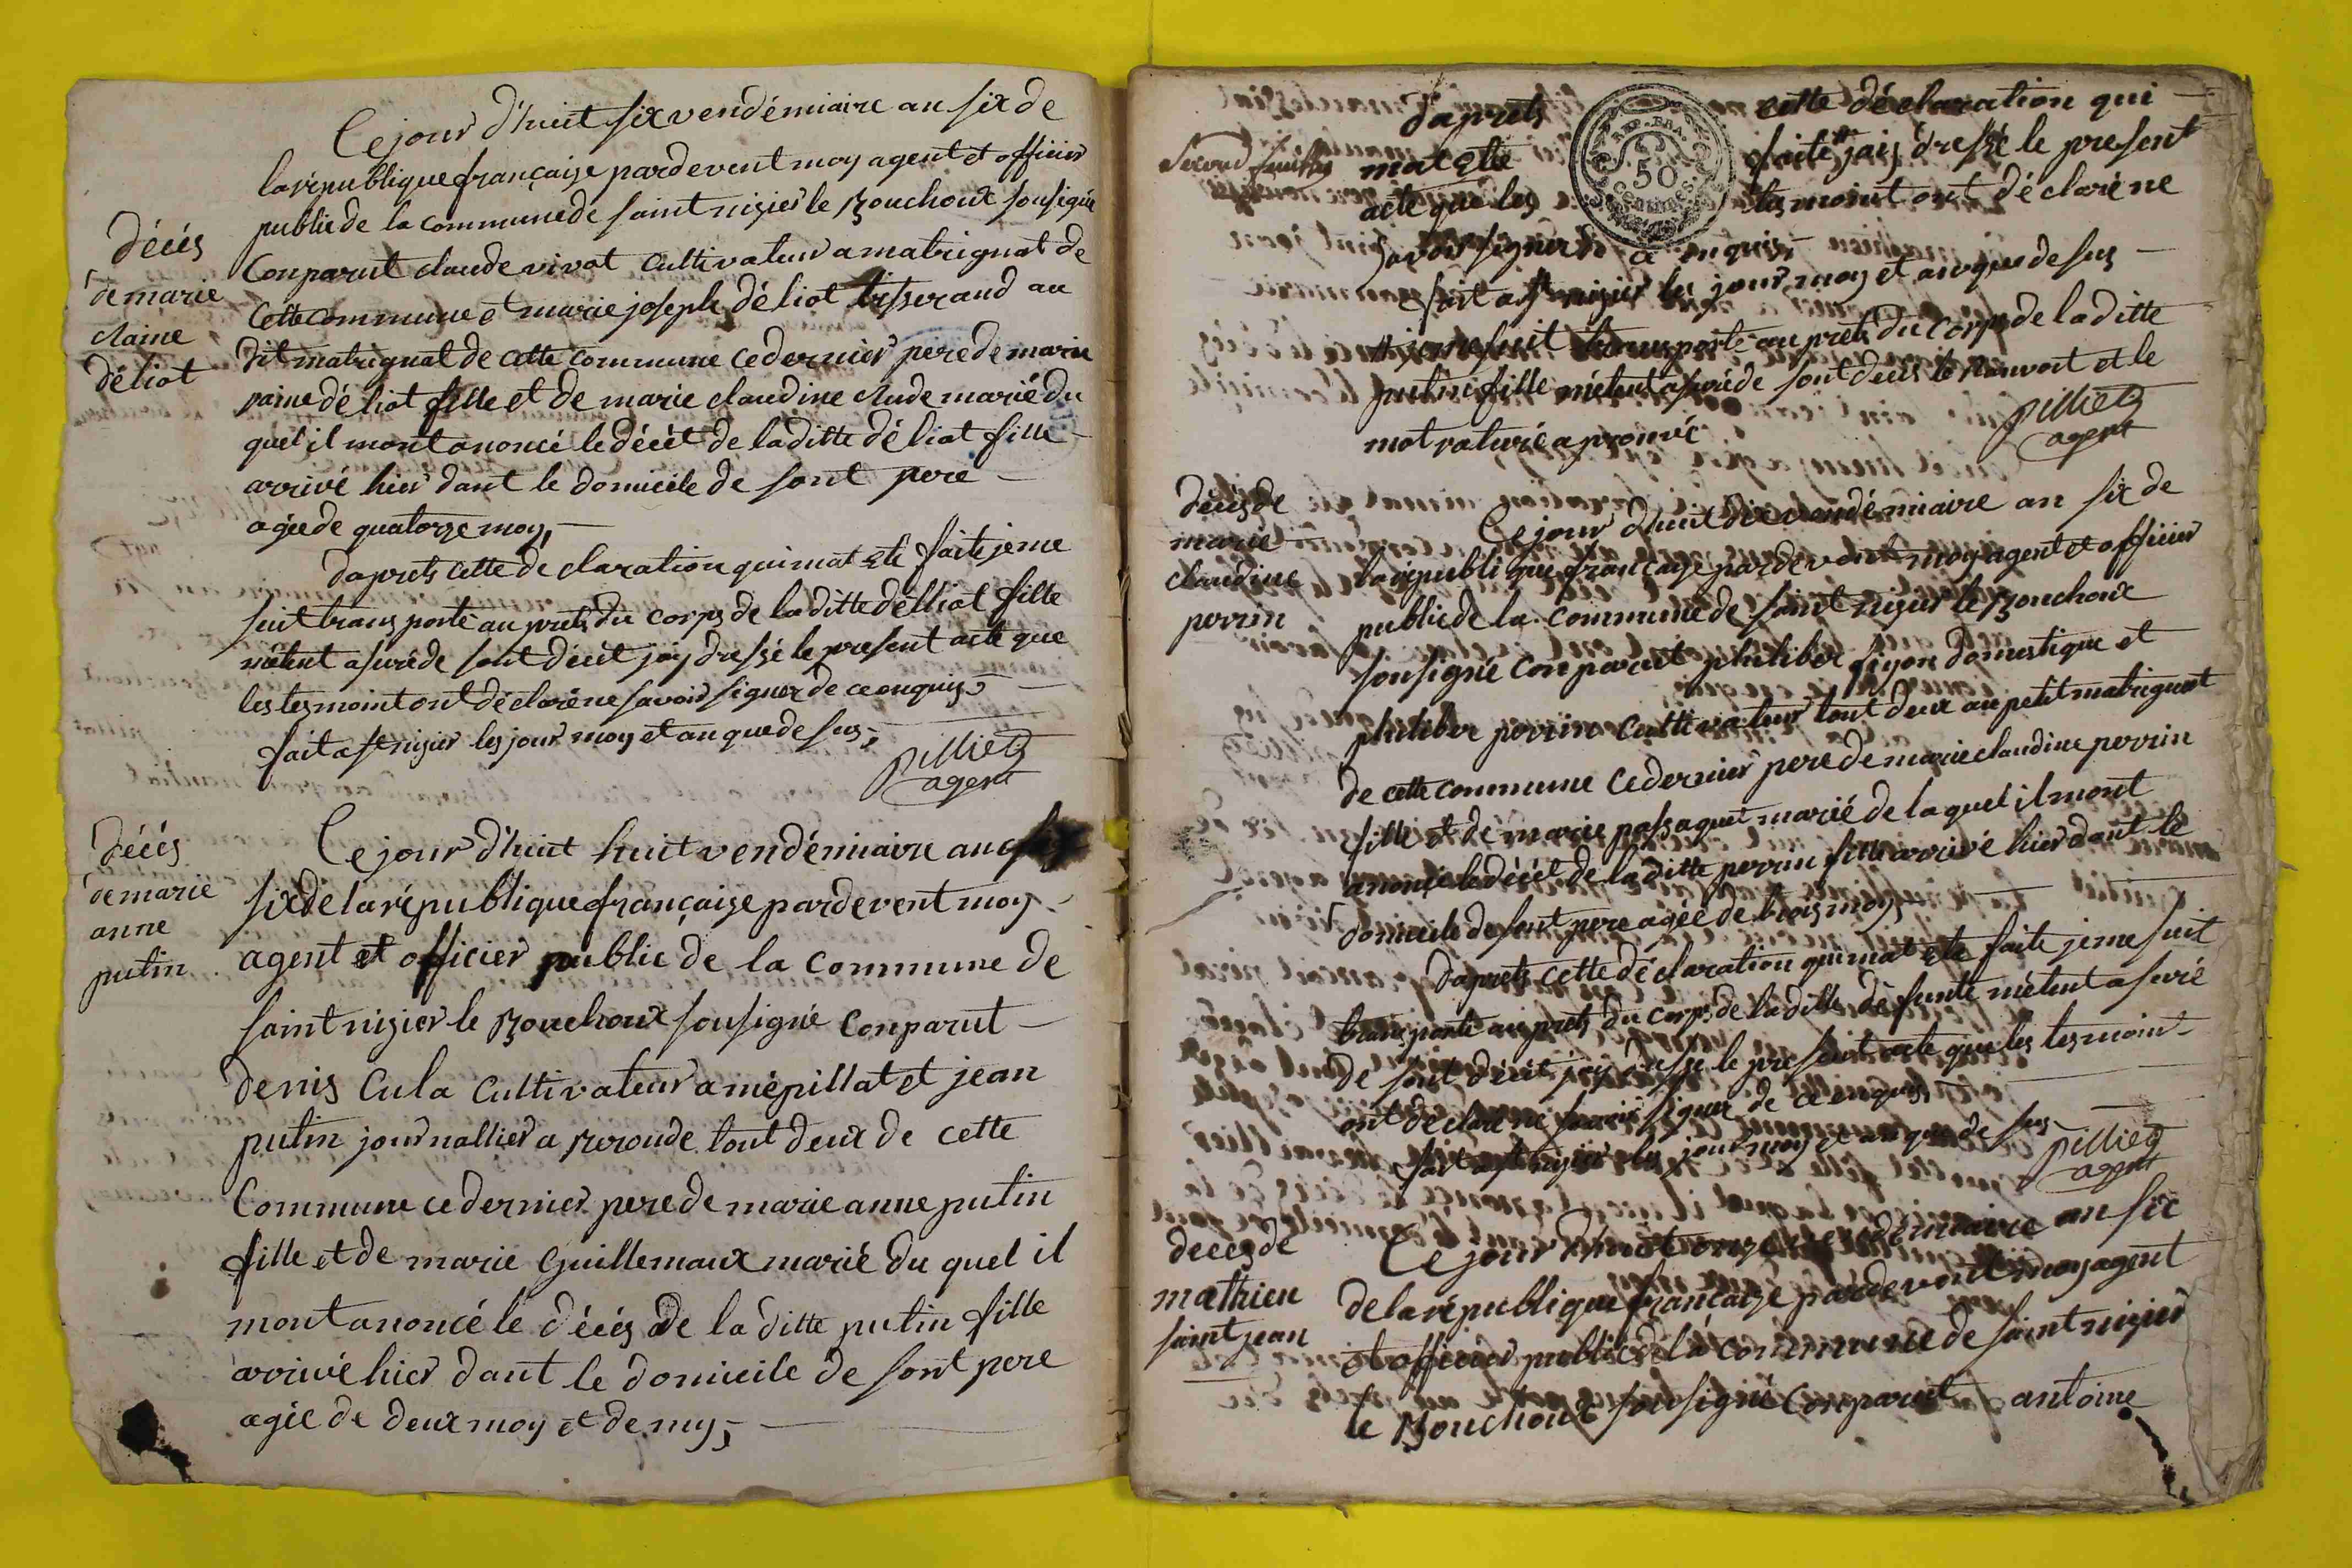 Ce jour d'huit six vendémiaire an six de
la république française pardevent moy agent et officier
public de la commune de saint nizier le Bouchoux sousigné
Conparut claude vivat cultivateur a matrignat de
Cette commune et marie joseph déliat tisserand au
dit matrignat de cette commune ce dernier pere de marie
déliat fille et de marie claudine marié du
quel il mont anoncé le décèt de la ditte déliat fille
arrivé hier dant le domicile de sont pere
agée de quatorze moy,
décés
de marie
claine
déliat
daprets cette declaration qui mat eté faite je me
suit transporté au prets du corps de la ditte délliat fille
métent asuré de sont décèt jay dressé le present acte que
les tesmoint ont déclaré ne savoir signer de ce enquis
fait a st nizier les jour moy et an que de sus;
pilliet
agent
décés
de marie
anne
putin
Ce jour d'huit huit vendémiaire an
six de la république française pardevent moy
agent et officier public de la commune de
saint nizier le Bouchoux sousigné Conparut
denis Cula Cultivateur a mépillat et jean
putin journallier a Beroude tout deux de cette
Commune ce dernier pere de marie anne putin
fille et de marie Guillemaux marié du quel il
mont anoncé le décés de la ditte putin fille
arrivé hier dant le domicile de sont pere
agée de deux moy et demy;
second feuillet
daprets cette déclaration qui
mat eté faite # jais dressé le present
acte que les tesmoint ont déclaré ne
savoir signer de ce enquis,
fait a st nizier les jour moy et an que de sus
REP. FRA.
50
CENTIMES
# je me suit transporté au prets du corps de la ditte
putin fille métent asuré de sont deces le Renvoit et le
mot raturé aprouvé
pilliet
agent
décés de
marie
claudine
perrin
Ce jour d'huit dix vendémiaire an six de
la république française pardevent moy agent et officier
public de la commune de saint nizier le Bouchoux
sousigné conparut philiber domestique et
philiber perrin cultivateur tout deux au petit matrignat
de cette commune ce dernier pere de marie claudine perrin
fille et de marie passaquet marié de la quel il mont
anoncé le décèt de la ditte perrin fille arrivé hier dant le
domicile de sont pere agée de trois moy,
daprets cette déclaration qui mat eté faite je me suit
transporté au prets du corps de la ditte défunte métent asuré
de sont décèt jay dressé le present acte que les tesmoint
ont declaré ne savoir signer de ce enquis,
fait a st nizier les jour moy et an que de sus
pilliet
agent
décès de
mathieu
saint jean
Ce jour d'huit onze vendémiaire an six
de la république française pardevent moy agent
et officier public de la commune de saint nizier
le Bouchoux sousigné Conparut antoine